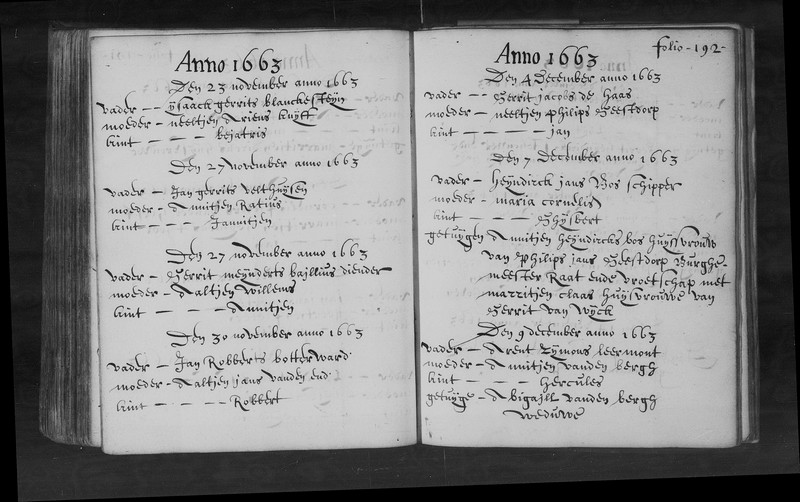 Anno 1663
Den 23 november anno 1663
vader - ysaack gerrits blanchesteyn
moeder - neeltjen Ariens kuyff
kint - - - - bejatris
Den 27 november anno 1663
vader - Jan gerrits velthuysen
moeder - Annitjen Ratius
kint - - - - Jannitjen
Den 27 november anno 1663
vader - Gerrit meynderts baillius diender
moeder - Aaltjen willems
kint - - - - Annitjen
Den 30 november anno 1663
vader - Jan Robberts botterward
moeder - Aaltjen jans vanden end
kint - - - - Robbert
folio - 192 -
Anno 1663
Den 4 December anno 1663
vader - - Gerrit jacobs de haas
moeder - neeltjen philips Geestdorp
kint - - - - jan
Den 7 December anno 1663
vader - heyndirck jans Bos schipper
moeder - maria cornelis
kint - - - - Ghysbert
getuygen Annitjen heyndircks bos huysvrouw
van Philips jans Geestdorp Burghe
meester Raat ende vroetschap met
marritjen claas huysvrouwe van
Gerrit van wyck
Den 9 december anno 1663
vader - Arent Symons leermont
moeder - Annitjen vanden bergh
kint - - - - hercules
getuyge - Abigajll vanden bergh
weduwe